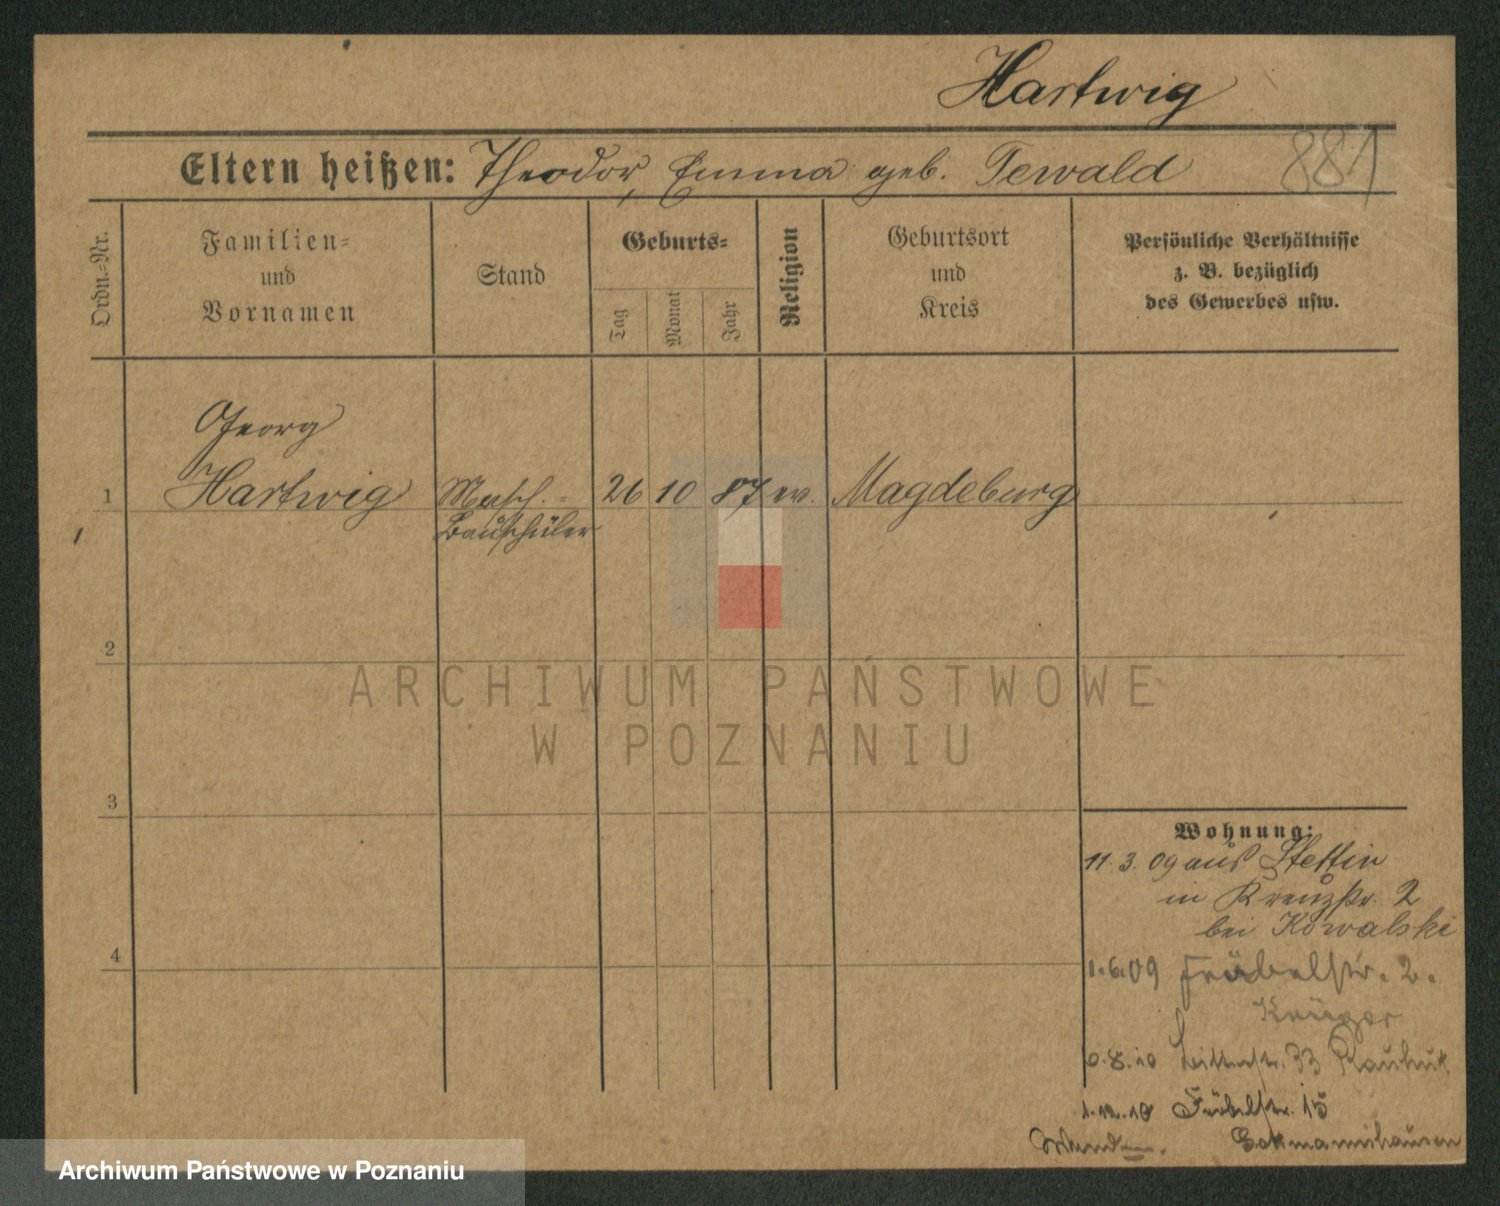 Hartwig
881
Eltern heißen: Theodor, Emma geb. Tewald
Ordn.=Nr.
Familien=
und
Vornamen
Stand
Geburts=
Tag
Monat
Jahr
Religion
Geburtsort
und
Kreis
Persönliche Verhältnisse
z. B. bezüglich
des Gewerbes usw.
Georg
1 Hartwig Masch.= 26 10 87 ev. Magdeburg
Bauschüler
2
3
4
Wohnung:
11.3.09 aus Stettin
in Kreuzstr. 2
bei Kowalski
1.6.09 Fröbelstr. 2.
Krüger
6.8.10 Ritterstr. 33
1.12.10 Fröbelstr. 15
ARCHIWUM PAŃSTWOWE
W POZNANIU
Archiwum Państwowe w Poznaniu